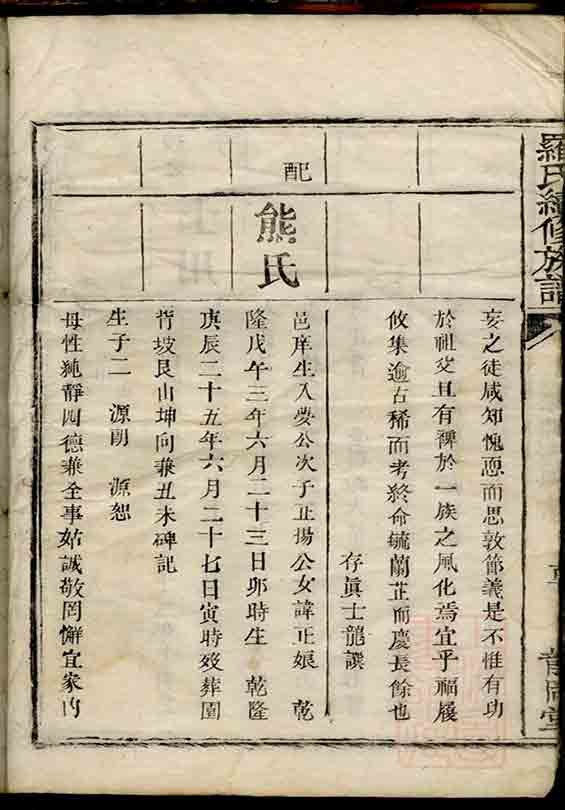 羅氏續修族譜
妄之徒咸知愧恧而思敦節義是不惟有功
於祖父且有裨於一族之風化焉宜乎福履
攸集逾古稀而考終命毓蘭芷而慶長餘也
存眞士龍譔
配
熊氏
邑庠生入夢公次子正揚公女諱正娘 乾
隆戊午三年六月二十三日卯時生 乾隆
庚辰二十五年六月二十七日寅時歿葬園
背坡艮山坤向兼丑未碑記
生子二 源明 源恕
母性純靜四德兼全事姑誠敬罔懈宜家内